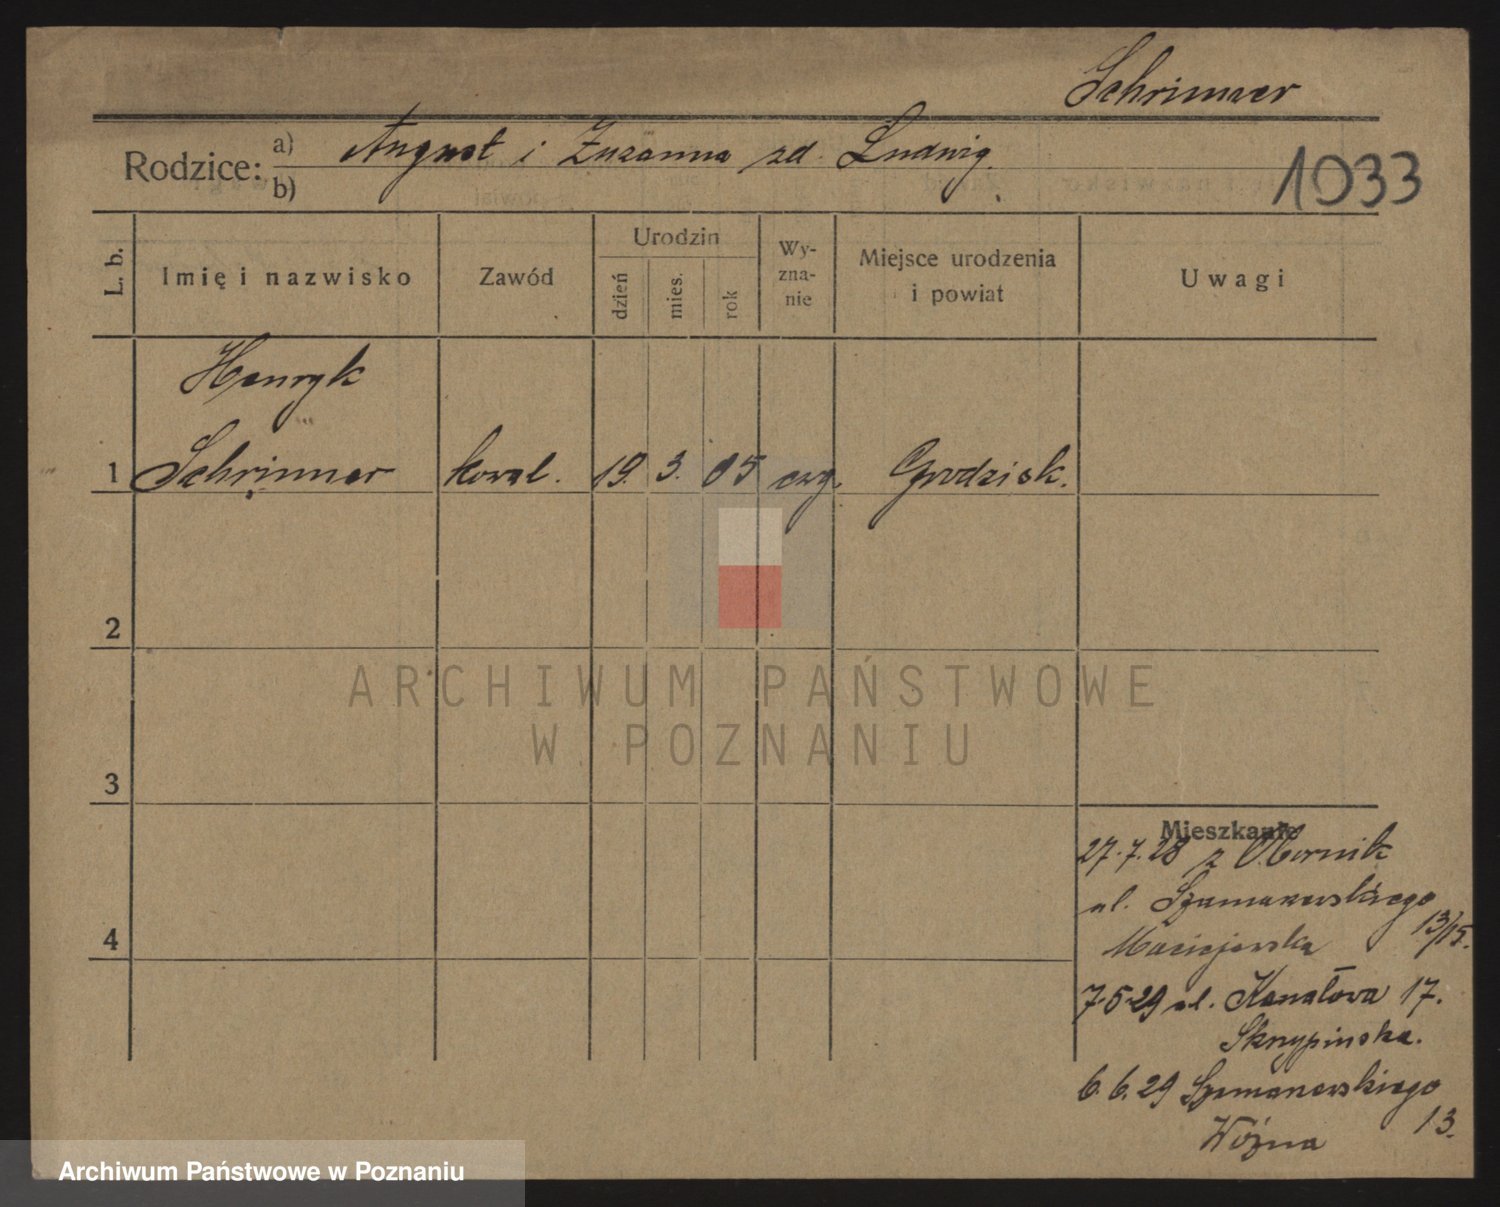 Schrimmer
Rodzice: a) August i Zuzanna zd. Ludwig.
b)
1033
L. b.
Imię i nazwisko
Zawód
Urodzin
dzień
mies.
rok
Wy-
zna-
nie
Miejsce urodzenia
i powiat
Uwagi
Henryk
1 Schrimmer kowal. 19. 3. 05 ewg. Grodzisk.
2
3
4
Mieszkanie
27.7.28 z Obornik
ul. Szamarzewskiego
13/15.
Maciejewska
7.5.29 ul. Kanałowa 17.
Skrypinska.
6.6.29 Szamarzewskiego
13.
Woźna
ARCHIWUM PAŃSTWOWE
W POZNANIU
Archiwum Państwowe w Poznaniu